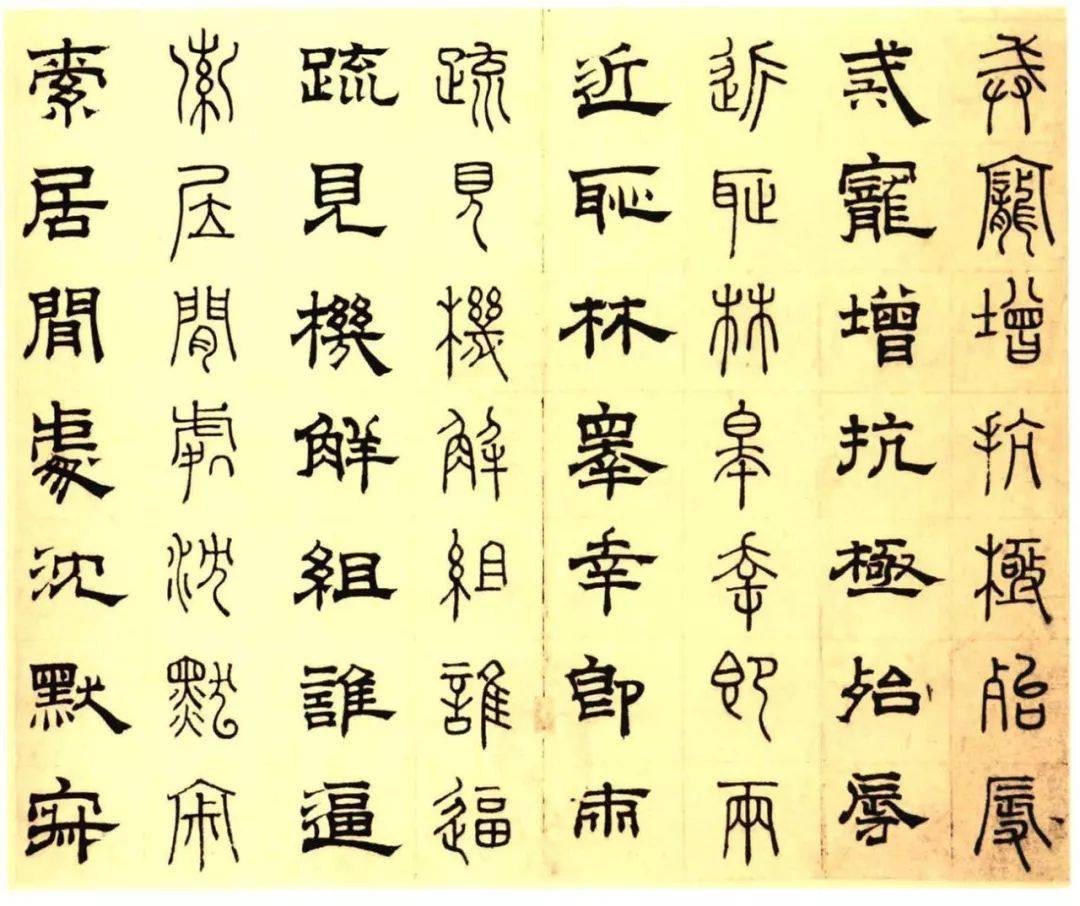 戒寵增抗極殆辱
戒寵增抗極殆辱
近恥林皋幸即兩
近恥林皋幸即兩
疏見機解組誰逼
疏見機解組誰逼
索居閒處沈默寂
索居閒處沈默寂